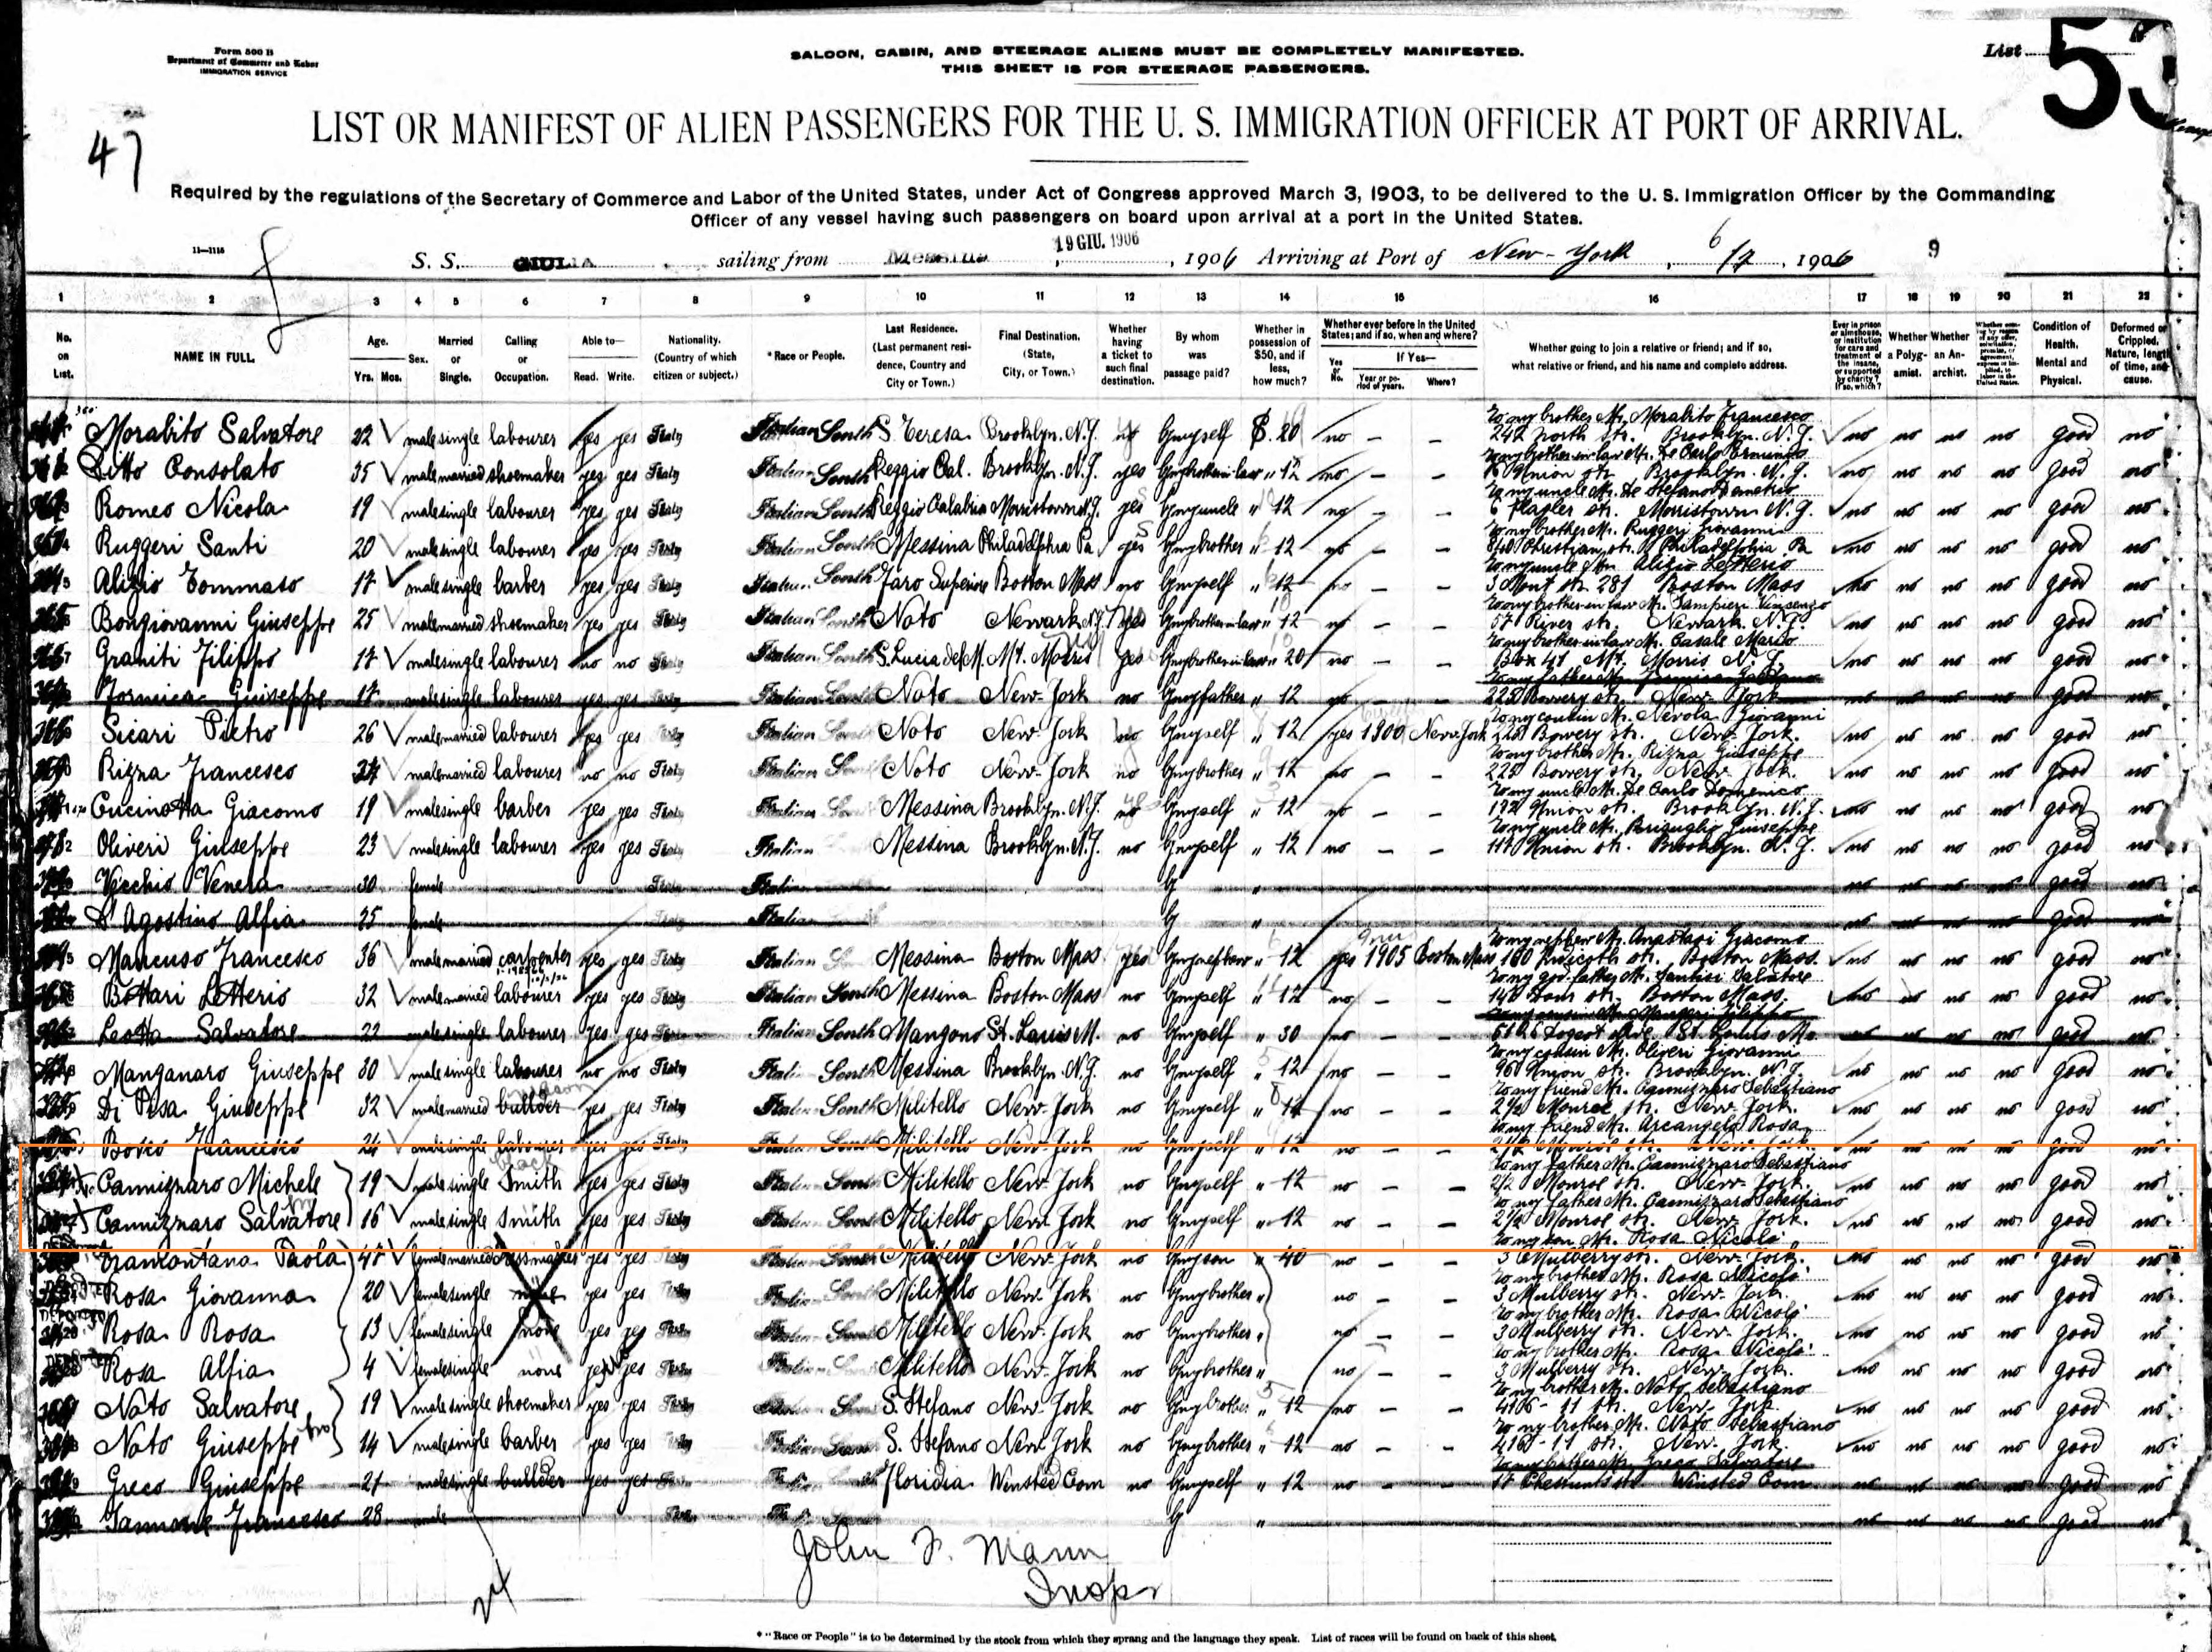 Form 500 B
Department of Commerce and Labor
IMMIGRATION SERVICE
SALOON, CABIN, AND STEERAGE ALIENS MUST BE COMPLETELY MANIFESTED.
THIS SHEET IS FOR STEERAGE PASSENGERS.
List 53
47
LIST OR MANIFEST OF ALIEN PASSENGERS FOR THE U. S. IMMIGRATION OFFICER AT PORT OF ARRIVAL.
Required by the regulations of the Secretary of Commerce and Labor of the United States, under Act of Congress approved March 3, 1903, to be delivered to the U. S. Immigration Officer by the Commanding
Officer of any vessel having such passengers on board upon arrival at a port in the United States.
11—1116
S. S. GIULIA sailing from Messina, 19 GIU. 1906, 1906 Arriving at Port of New-York, 6/17, 1906
9
1 2 3 4 5 6 7 8 9 10 11 12 13 14 15 16 17 18 19 20 21 22
No. on List.
NAME IN FULL.
Age. Yrs. Mos.
Sex.
Married or Single.
Calling or Occupation.
Able to— Read. Write.
Nationality. (Country of which citizen or subject.)
*Race or People.
Last Residence. (Last permanent residence, Country and City or Town.)
Final Destination. (State, City, or Town.)
Whether having a ticket to such final destination.
By whom was passage paid?
Whether in possession of $50, and if less, how much?
Whether ever before in the United States; and if so, when and where?
Yes or No. If Yes— Year or period of years. Where?
Whether going to join a relative or friend; and if so, what relative or friend, and his name and complete address.
Ever in prison or almshouse, or institution for care and treatment of the insane, or supported by charity? If so, which?
Whether a Polygamist.
Whether an Anarchist.
Condition of Health, Mental and Physical.
Deformed or Crippled. Nature, length of time, and cause.
Morabito Salvatore 22 male single labourer yes yes Italy Italian South S. Teresa Brooklyn. N.J. no by myself $. 20 no – – to my brother Mr. Morabito Francesco 242 North str. Brooklyn. N.J. no no no no good no
Ditto Consolato 35 male married shoemaker yes yes Italy Italian South Reggio Cal. Brooklyn. N.J. yes by my brother in law " 12 no – – Union str. Brooklyn. N.J. no no no no good no
Romeo Nicola 19 male single labourer yes yes Italy Italian South Reggio Calabria Morristown N.J. yes by my uncle " 12 no – – to my uncle Mr. De Stefano Demetrio 6 Flagler str. Morristown N.J. no no no no good no
Ruggeri Santi 20 male single labourer yes yes Italy Italian South Messina Philadelphia Pa. yes by my brother " 12 no – – to my brother Mr. Ruggeri Giovanni Christian str. Philadelphia Pa no no no no good no
Alizio Tommaso 17 male single barber yes yes Italy Italian South Faro Superiore Boston Mass no by myself " 12 no – – to my uncle Mr. Alizio Letterio 3 Mont str. 281 Boston Mass no no no no good no
Bongiovanni Giuseppe 25 male married shoemaker yes yes Italy Italian South Noto Newark N.J. yes by my brother in law " 12 no – – to my brother-in-law Mr. Sampieri Vincenzo 57 River str. Newark. N.J. no no no no good no
Graniti Filippo 17 male single labourer no no Italy Italian South S. Lucia del M. Mt. Morris yes by my brother in law " 20 no – – to my brother in law Mr. Casale Marco Box 41 Mt. Morris N.J. no no no no good no
Formica Giuseppe 17 male single labourer yes yes Italy Italian South Noto New-York no by my father " 12 no 225 Bowery str. New-York no no no no good no
Sicari Pietro 26 male married labourer yes yes Italy Italian South Noto New-York no by myself " 12 yes 1900 New-York to my cousin Mr. Nevola Giovanni 225 Bowery str. New-York. no no no no good no
Rizza Francesco 24 male married labourer no no Italy Italian South Noto New-York no by my brother " 12 no – – to my brother Mr. Rizza Giuseppe 225 Bowery str. New-York. no no no no good no
Cucinotta Giacomo 19 male single barber yes yes Italy Italian Messina Brooklyn. N.J. no by myself " 12 no – – to my uncle Mr. De Carlo Domenico Union str. Brooklyn. N.J. no no no no good no
Oliveri Giuseppe 23 male single labourer yes yes Italy Italian Messina Brooklyn. N.J. no by myself " 12 no – – to my uncle Mr. Briguglio Giuseppe Union str. Brooklyn. N.J. no no no no good no
Vecchio Venera 30 female Italy Italian no no no no good no
D'Agostino Alfia 35 female Italy Italian no no no no good no
Mancuso Francesco 36 male married carpenter yes yes Italy Italian Messina Boston Mass yes by my nephew " 12 yes 1905 Boston Mass to my nephew Mr. Anastasi Giacomo str. Boston Mass. no no no no good no
Bottari Letterio 32 male married labourer yes yes Italy Italian South Messina Boston Mass no by myself " 12 no – – to my god father Mr. Santisi Salvatore str. Boston Mass. no no no no good no
Leotta Salvatore 22 male single labourer yes yes Italian South Mangono St. Louis M. no by myself " 30 no – – St. Louis Mo. no no no no good no
Manganaro Giuseppe 30 male single labourer no no Italy Italian South Messina Brooklyn. N.J. no by myself " 12 no – – to my cousin Mr. Oliveri Giovanni 96 Union str. Brooklyn. N.J. no no no no good no
Di Pisa Giuseppe 32 male married builder mason yes yes Italy Italian South Militello New-York no by myself " 14 no – – to my friend Mr. Cannizzaro Sebastiano Monroe str. New-York. no no no no good no
Bosco Francesco 24 male single labourer yes yes Italy Italian South Militello New-York no by myself " 12 no – – to my friend Mr. Arcangelo Rosa Monroe str. New-York. no no no no good no
Cannizzaro Michele 19 male single black Smith yes yes Italy Italian South Militello New-York no by myself " 12 no – – to my father Mr. Cannizzaro Sebastiano Monroe str. New-York. no no no no good no
Cannizzaro Salvatore 16 male single smith yes yes Italy Italian South Militello New York no by myself " 12 no – – to my father Mr. Cannizzaro Sebastiano Monroe str. New-York. no no no no good no
Tramontana Paola 47 female married dressmaker yes yes Italy Italian South Militello New-York no by my son " 40 no – – to my son Mr. Rosa Nicolò 3 Mulberry str. New-York. no no no no good no
Rosa Giovanna 20 female single none yes yes Italy Italian South Militello New-York no by my brother " no – – to my brother Mr. Rosa Nicolò 3 Mulberry str. New-York. no no no no good no
Rosa Rosa 13 female single none yes yes Italy Italian South Militello New-York no by my brother " no – – to my brother Mr. Rosa Nicolò 3 Mulberry str. New-York. no no no no good no
Rosa Alfia 4 female single none yes yes Italy Italian South Militello New-York no by my brother " no – – to my brother Mr. Rosa Nicolò 3 Mulberry str. New-York. no no no no good no
Noto Salvatore 19 male single shoemaker yes yes Italy Italian South S. Stefano New-York no by my brother " 12 no – – to my brother Mr. Noto Sebastiano 11 str. New-York no no no no good no
Noto Giuseppe bro 14 male single barber yes yes Italy Italian South S. Stefano New York no by my brother " 12 no – – to my brother Mr. Noto Sebastiano 11 str. New-York. no no no no good no
Greco Giuseppe 21 male single builder yes yes Italian South Floridia Winsted Con no by myself " 12 no – – to my father Mr. Greco Salvatore Chestnut str. Winsted Conn. no no no no good no
Iannone Francesco 28 male no no no no good no
John F. Mann
Inspr
24
* "Race or People" is to be determined by the stock from which they sprang and the language they speak. List of races will be found on back of this sheet.